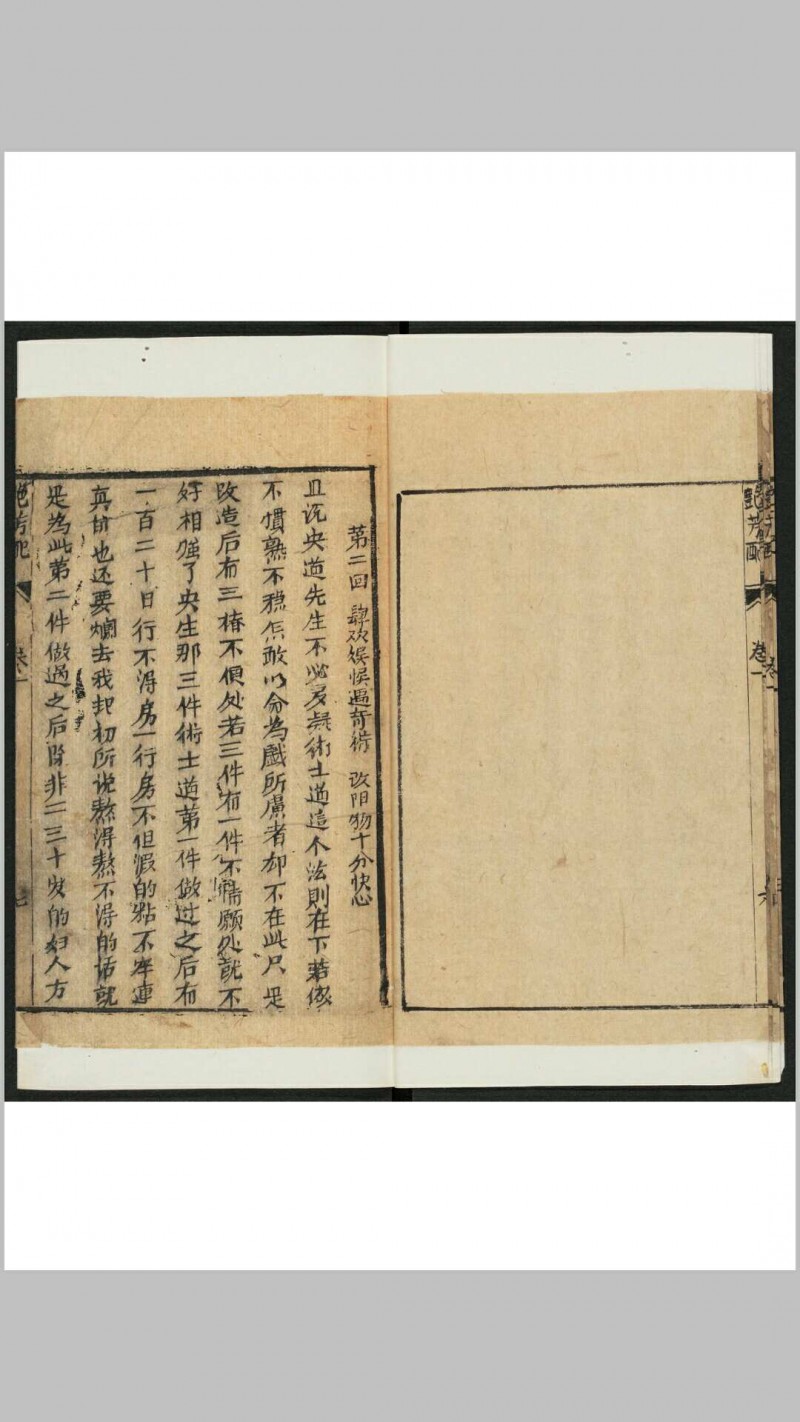 艷芳配
卷一
六
第二回 肆欢娱悞遇奇術 改阳物十分快心
且说央道先生不必多疑術士道這个法則在下若做
不慣熟不稳怎敢以分為戲所慮者却不在此只是
改造后有三椿不便处若三件有一件不情願处就不
好相强了央生那三件術士道第一件做过之后有
一百二十日行不得房一行房不但假的粘不牢連
真的也还要爛去我起初所说熬得熬不得的话就
是為此第二件做過之后除非二三十岁的妇人方